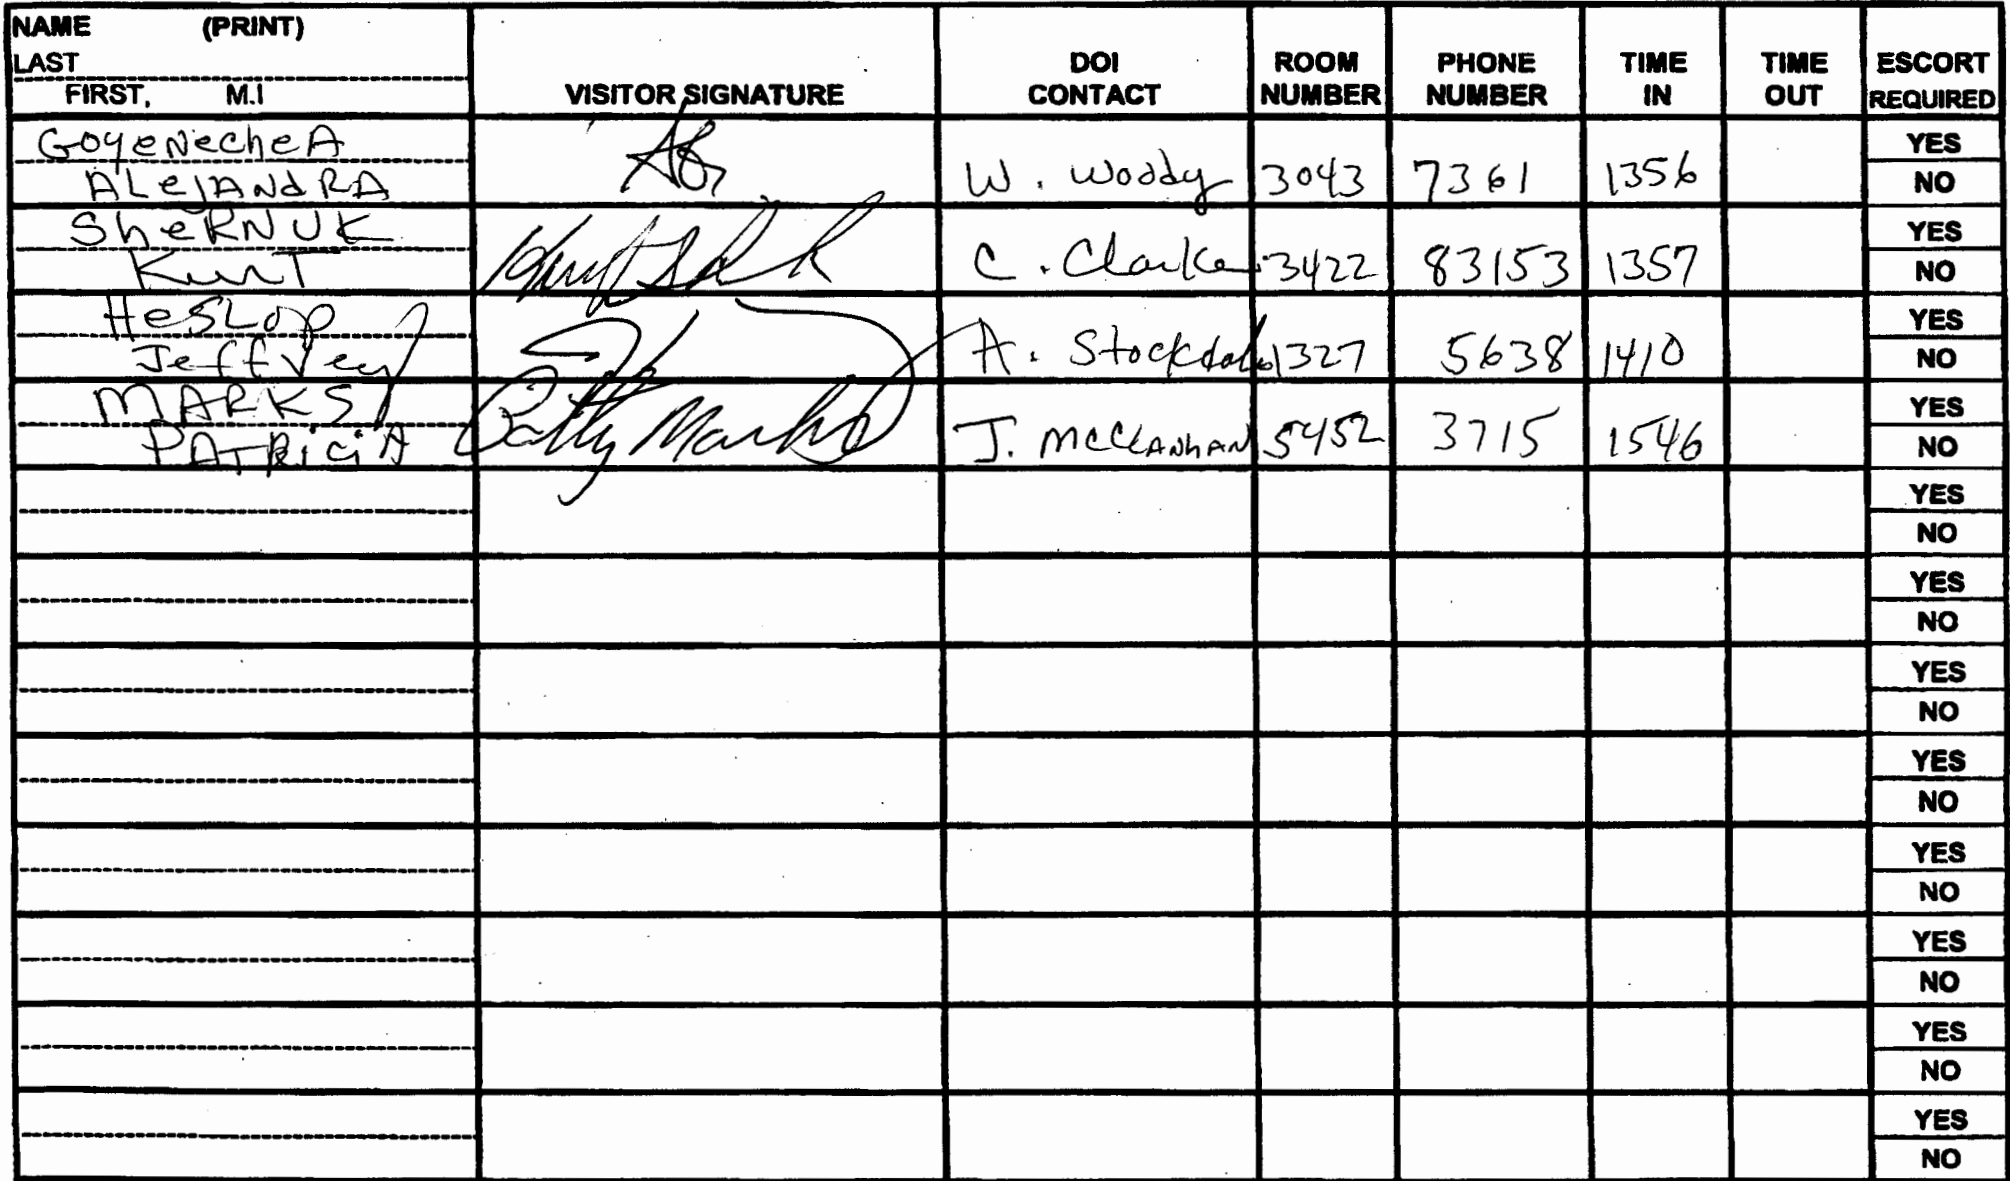 NAME (PRINT)
LAST
FIRST, M.I
VISITOR SIGNATURE
DOI
CONTACT
ROOM
NUMBER
PHONE
NUMBER
TIME
IN
TIME
OUT
ESCORT
REQUIRED
GoyeNecheA
ALeJANdRA
W. Woddy 3043 7361 1356
YES
NO
SheRNUK
KurT
C. Clarke 3422 83153 1357
YES
NO
HeSLop
Jeffrey
A. Stockdale 1327 5638 1410
YES
NO
MARKS
PATRiciA
Patty Marks
J. McCLANhAN 5452 3715 1546
YES
NO
YES
NO
YES
NO
YES
NO
YES
NO
YES
NO
YES
NO
YES
NO
YES
NO